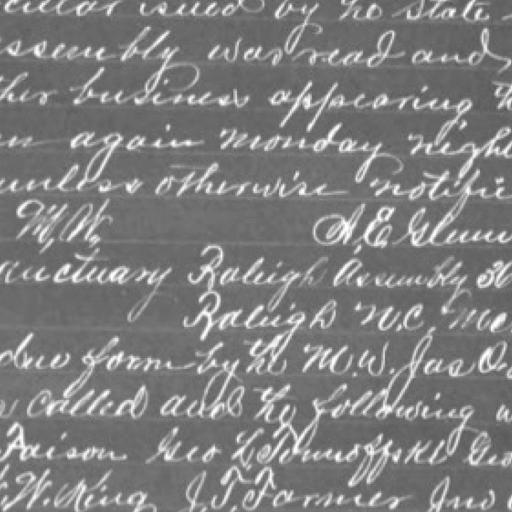 issued by the State
ssembly was read and
ther business appearing
again monday night
unless otherwise notifie
M, W, A, E Glenn
anctuary Raleigh Assembly 36
Raleigh N.C.
due form by the M.W. Jas
called and the following
Faison Geo L Tonnoffski Geo
W. King J, T, Farmer Jno